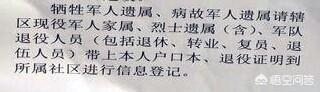 牺牲军人遗属、病故军人遗属请辖
区现役军人家属、烈士遗属（含）、军队
退役人员（包括退休、转业、复员、退
伍人员）带上本人户口本、退役证明到
所属社区进行信息登记。
悟空问答